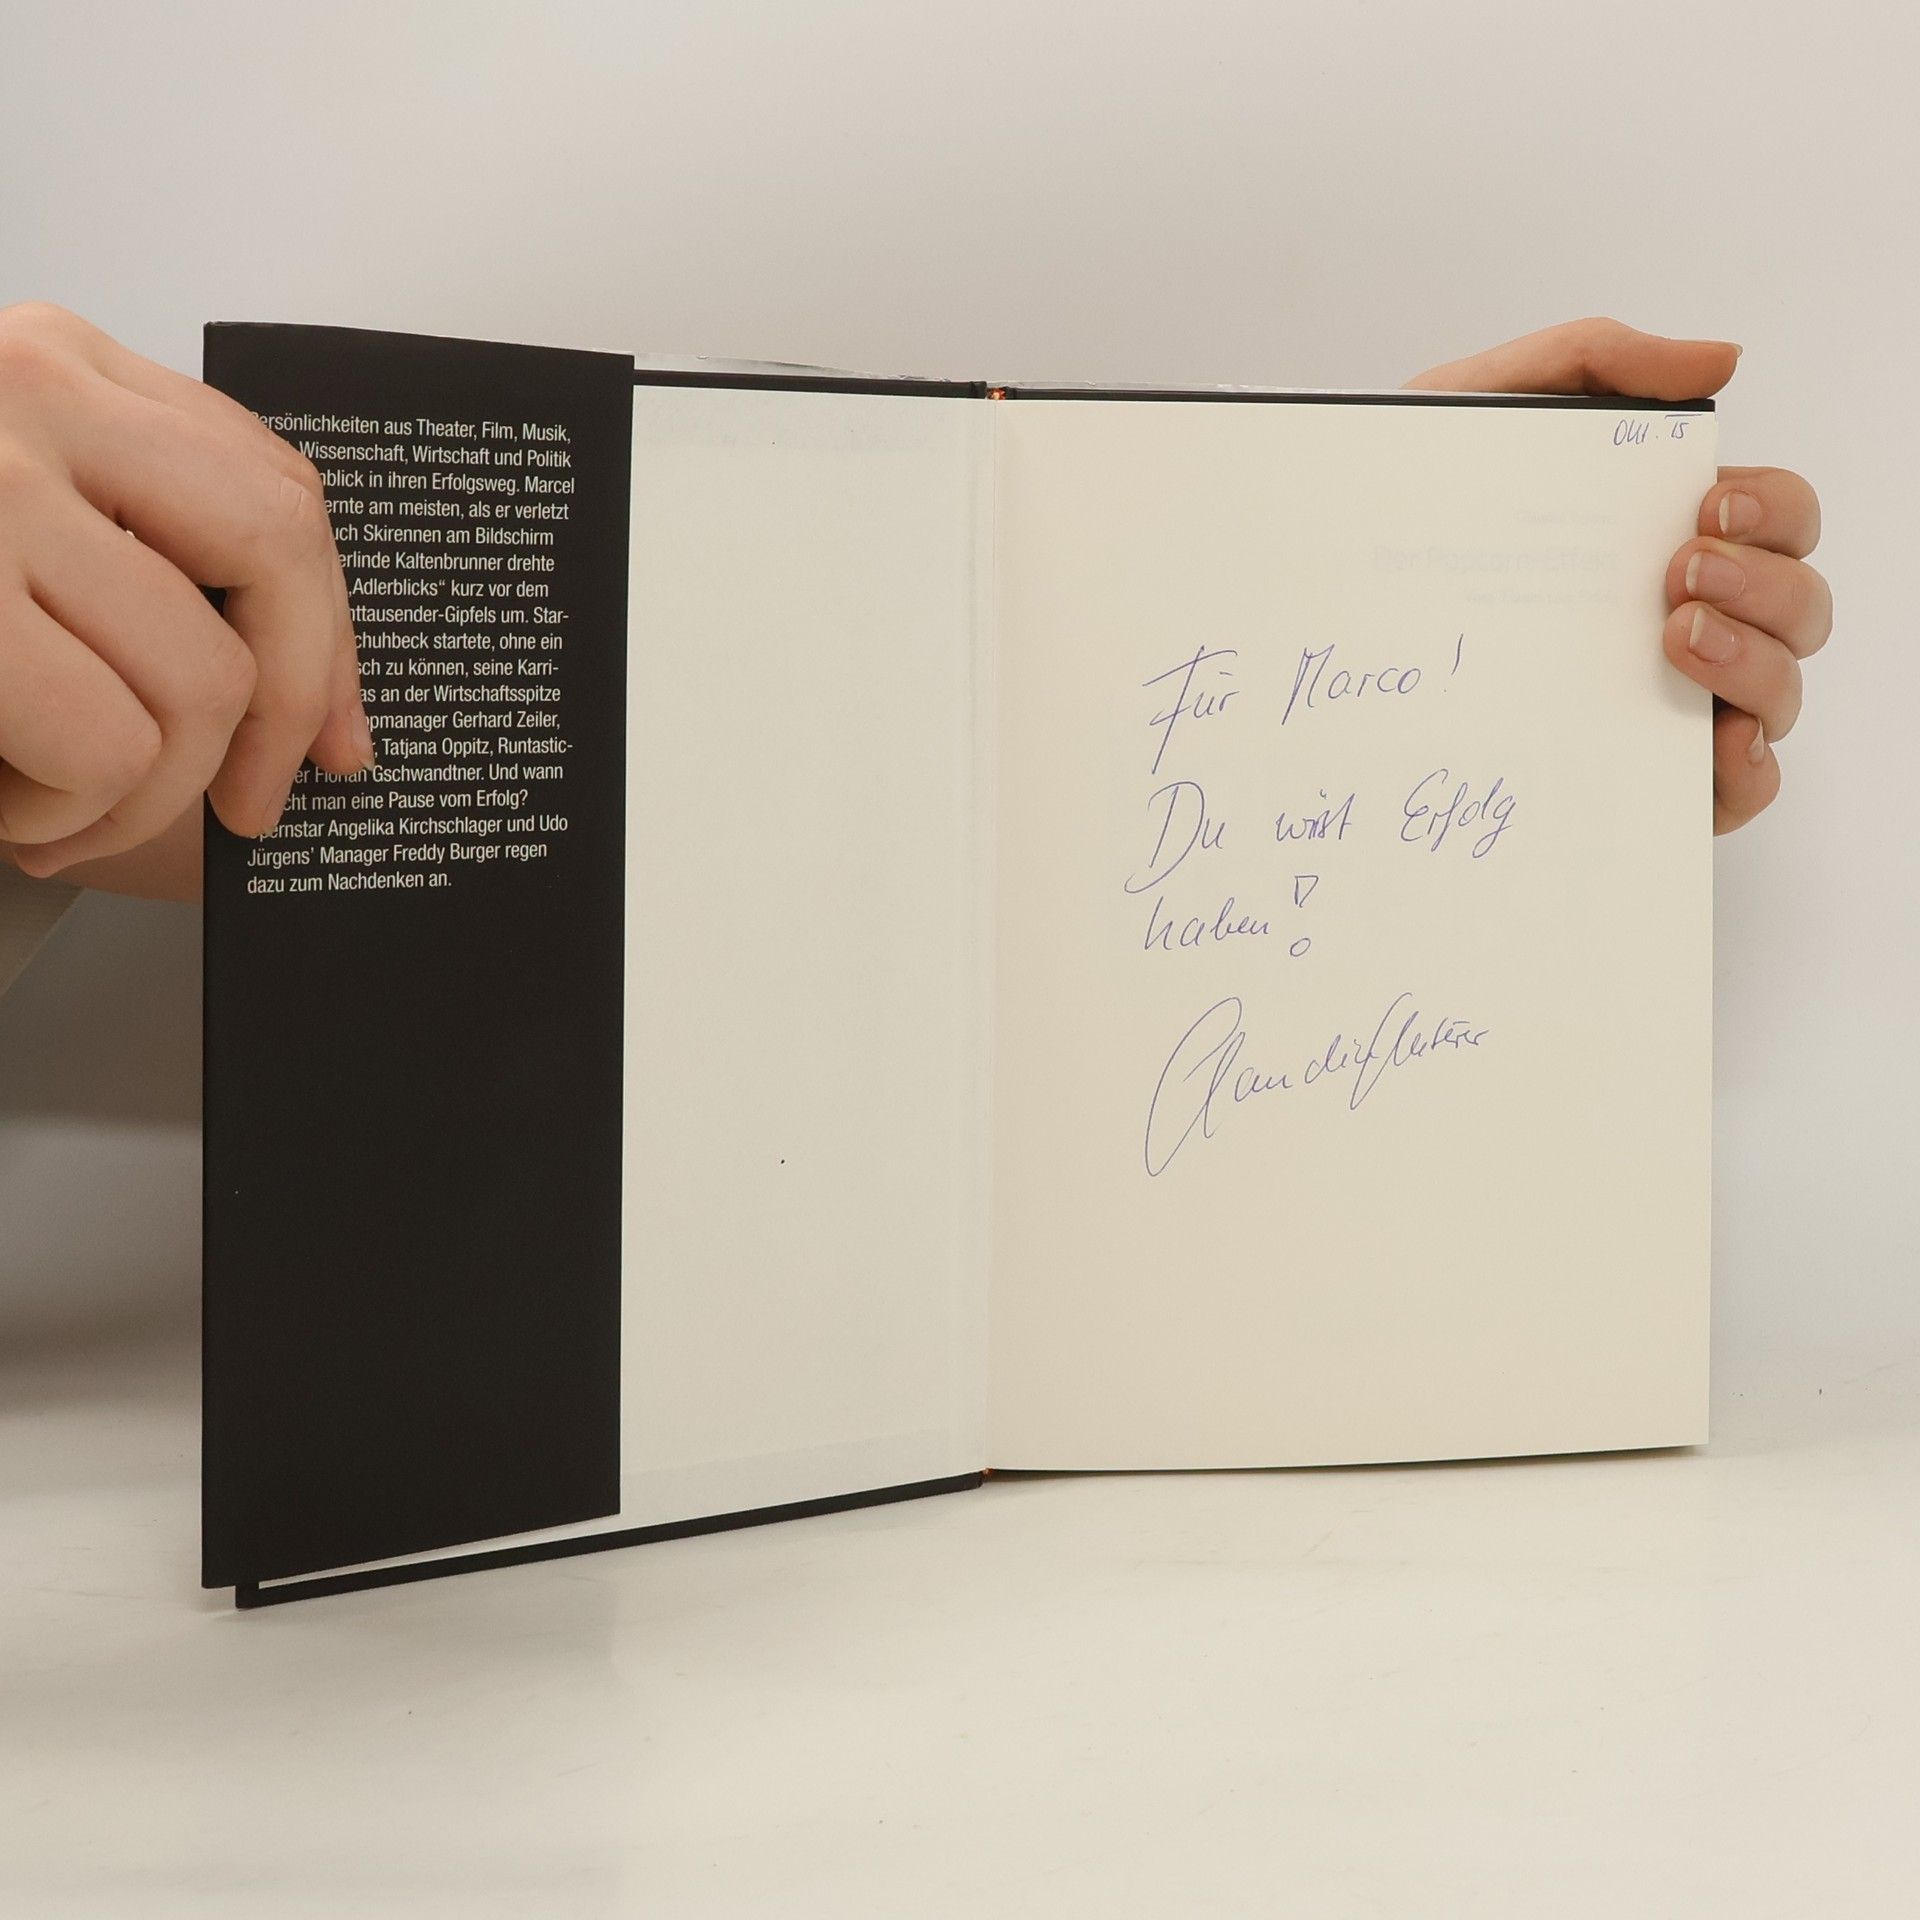 Persönlichkeiten aus Theater, Film, Musik,
Wissenschaft, Wirtschaft und Politik
in ihren Erfolgsweg. Marcel
am meisten, als er verletzt
Skirennen am Bildschirm
Kaltenbrunner drehte
„Adlerblicks“ kurz vor dem
-Gipfels um. Star-
startete, ohne ein
zu können, seine Karri-
an der Wirtschaftsspitze
Gerhard Zeiler,
Tatjana Oppitz, Runtastic-
Florian Gschwandtner. Und wann
man eine Pause vom Erfolg?
Opernstar Angelika Kirchschlager und Udo
Jürgens’ Manager Freddy Burger regen
dazu zum Nachdenken an.
Okt. 15
Der Popcorn-Effekt
Für Marco!
Du wirst Erfolg
haben!